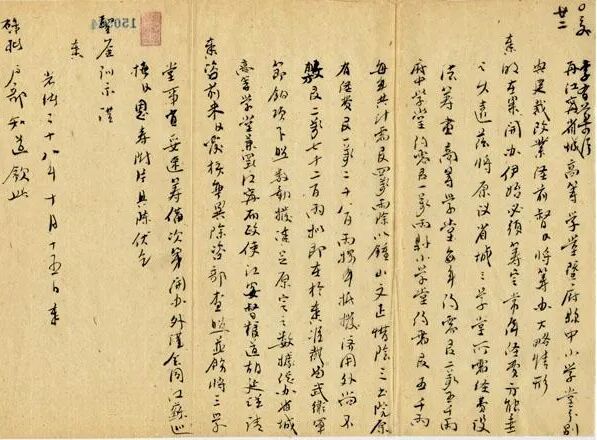 廿二
再江寧省城高等學堂暨府縣中小學堂分別
與建裁改業經前督臣將籌辦大略情形
奏明在案開辦伊始必須籌定常年經費方能垂
之久遠茲將原議省城三學堂所需經費設
法籌畫高等學堂每年約需銀一萬五千兩
府中學堂約需銀一萬兩縣小學堂約需銀五千兩
每年共計需銀四萬兩除以鐘山文正惜陰三書院原
有經費銀一萬二千八百兩撥抵濟用外尚不
敷銀二萬七千二百兩擬即在於奏准裁節武衛軍
節餉項下照數動撥清足原定之數據總辦省城
高等學堂兼署江寧布政使江安督糧道胡延詳請
奏咨前來臣覆核無異除咨部查照並飭將三學
堂事宜妥速籌備次第開辦外謹會同江蘇巡
撫臣恩壽附片具陳伏乞
聖鑒訓示謹
奏
光緒二十八年十月十五日奉
硃批戶部知道欽此